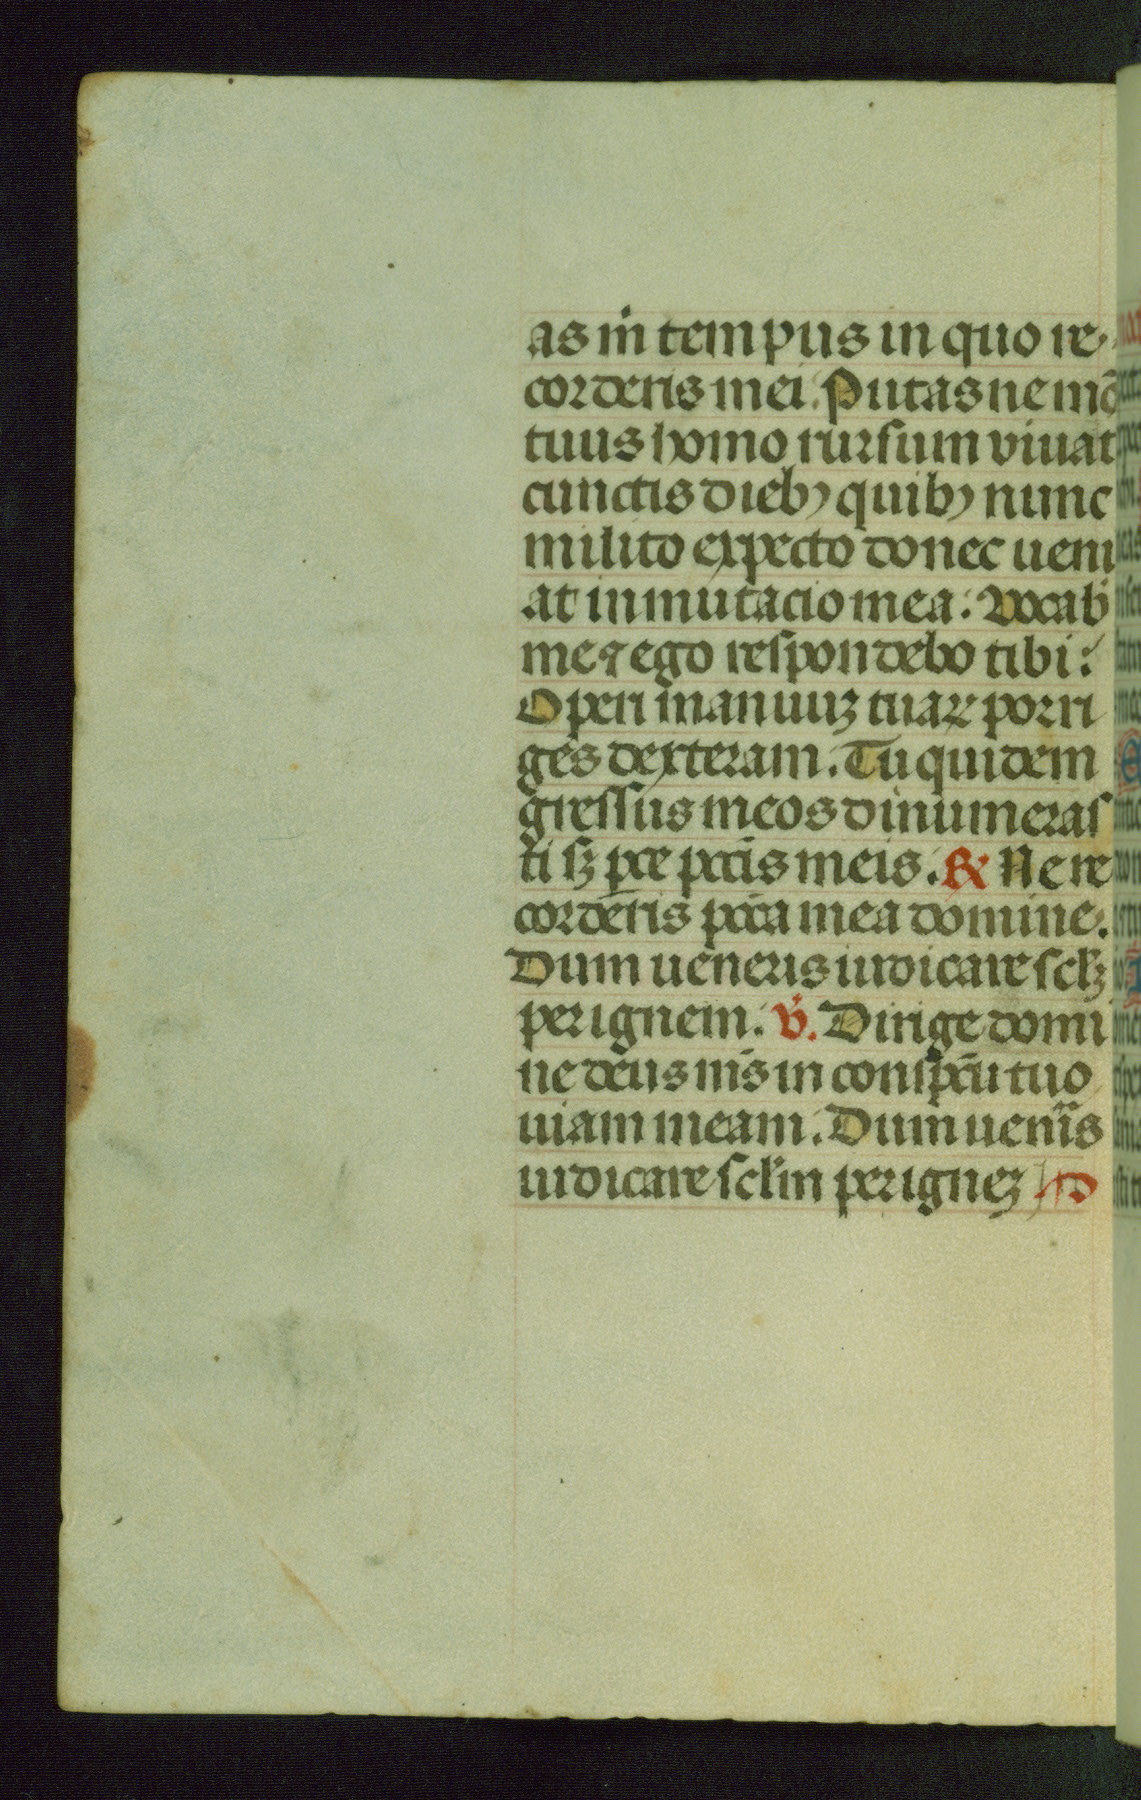 as m̄ tempus in quo re
corderis mei. Putas ne mō
tuus homo rursum viuat
cunctis dieb₉ quib₉ nunc
milito expecto donec ueni
at inmutacio mea: Vocab̄
me ⁊ ego respondebo tibi:
Operi manuuꝫ tuaꝝ porri
ges dexteram. Tu quidem
gressus meos dinumeras
ti sꝫ ꝑce pccīs meis. ℟ Ne re
corderis pccā mea domine.
Dum ueneris iudicare sclꝫ
per ignem. ℣. Dirige domi
ne deus m̄s in conspc̄u tuo
uiam meam. Dum uenīs
iudicare sclm̄ per igneꝫ